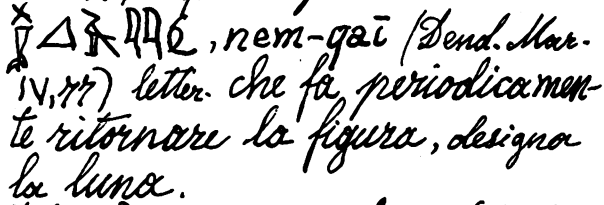 , nem-qaï (Dend. Mar.
IV, 77) letter. che fa periodicamen-
te ritornare la figura, designa
la luna.